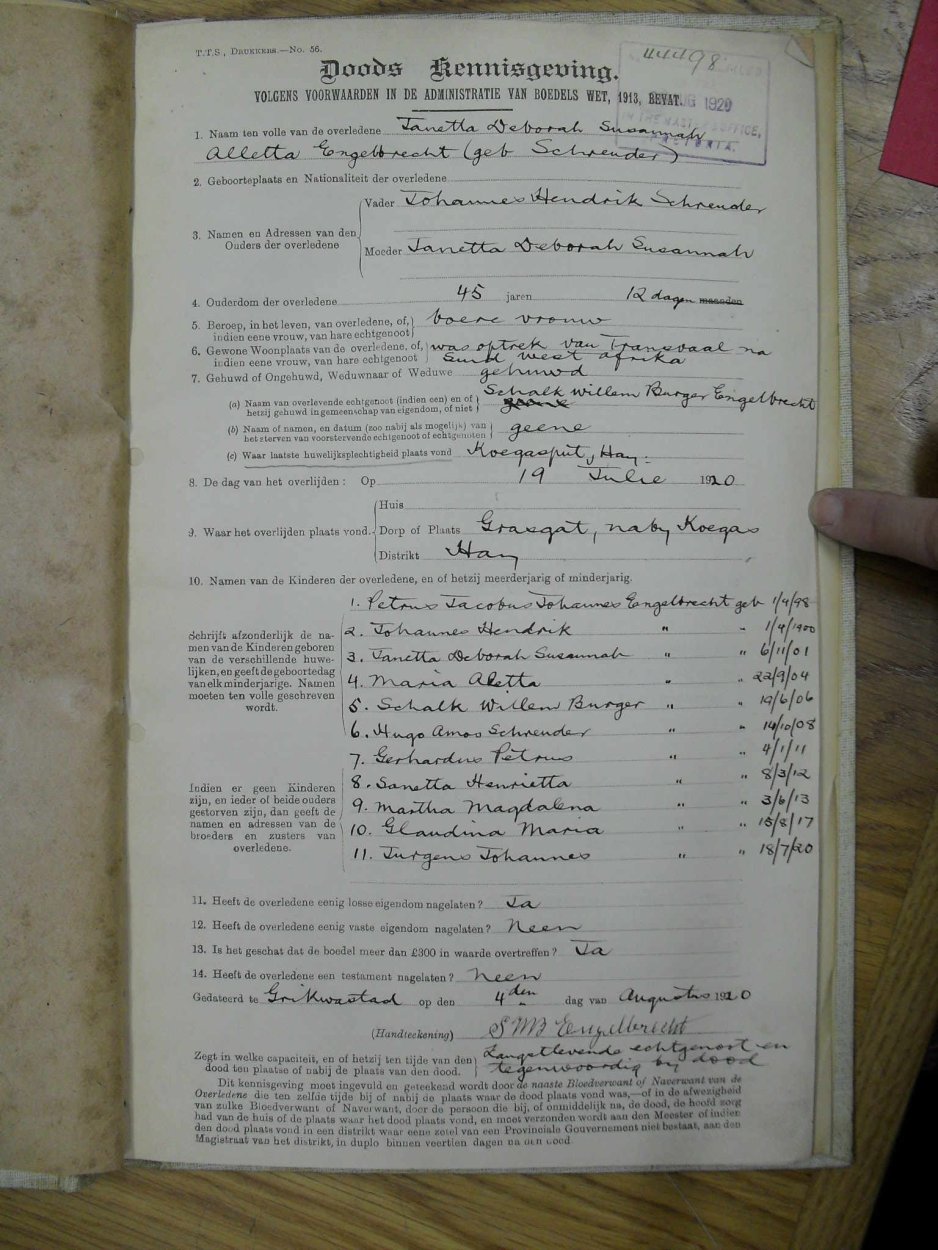 T.T.S., DRUKKERS.—No. 56.
44498
AUG 1920
IN THE MASTER'S OFFICE,
PRETORIA.
Doods Kennisgeving.
VOLGENS VOORWAARDEN IN DE ADMINISTRATIE VAN BOEDELS WET, 1913, BEVAT.
1. Naam ten volle van de overledene Janetta Deborah Susannah
Alletta Engelbrecht (geb Schreuder)
2. Geboorteplaats en Nationaliteit der overledene
3. Namen en Adressen van den Ouders der overledene
Vader Johannes Hendrik Schreuder
Moeder Janetta Deborah Susannah
4. Ouderdom der overledene 45 jaren 12 dagen maanden
5. Beroep, in het leven, van overledene, of,
indien eene vrouw, van hare echtgenoot
boere vrouw
6. Gewone Woonplaats van de overledene, of,
indien eene vrouw, van hare echtgenoot
was optrek van Transvaal na
Suid west afrika
7. Gehuwd of Ongehuwd, Weduwnaar of Weduwe gehuwd
(a) Naam van overlevende echtgenoot (indien een) en of
hetzij gehuwd in gemeenschap van eigendom, of niet
Schalk Willem Burger Engelbrecht
geene
(b) Naam of namen, en datum (zoo nabij als mogelijk) van
het sterven van voorstervende echtgenoot of echtgenoten
geene
(c) Waar laatste huwelijksplechtigheid plaats vond Koegasput, Hay.
8. De dag van het overlijden: Op 19 Julie 1920
9. Waar het overlijden plaats vond.
Huis
Dorp of Plaats Grasgat, naby Koegas
Distrikt Hay
10. Namen van de Kinderen der overledene, en of hetzij meerderjarig of minderjarig.
Schrijft afzonderlijk de na-
men van de Kinderen geboren
van de verschillende huwe-
lijken, en geeft de geboortedag
van elk minderjarige. Namen
moeten ten volle geschreven
wordt.
Indien er geen Kinderen
zijn, en ieder of beide ouders
gestorven zijn, dan geeft de
namen en adressen van de
broeders en zusters van
overledene.
1. Petrus Jacobus Johannes Engelbrecht geb 1/4/98
2. Johannes Hendrik " " 1/4/1900
3. Janetta Deborah Susannah " " 6/11/01
4. Maria Aletta " " 22/9/04
5. Schalk Willem Burger " " 19/6/06
6. Hugo Amos Schreuder " " 14/10/08
7. Gerhardus Petrus " " 4/1/11
8. Sanetta Henrietta " " 8/3/12
9. Martha Magdalena " " 3/6/13
10. Glaudina Maria " " 15/8/17
11. Jurgens Johannes " " 18/7/20
11. Heeft de overledene eenig losse eigendom nagelaten? Ja
12. Heeft de overledene eenig vaste eigendom nagelaten? Neen
13. Is het geschat dat de boedel meer dan £300 in waarde overtreffen? Ja
14. Heeft de overledene een testament nagelaten? Neen
Gedateerd te Grikwastad op den 4den dag van Augustus 1920
(Handteekening) S W B Engelbrecht
Zegt in welke capaciteit, en of hetzij ten tijde van den
dood ten plaatse of nabij de plaats van den dood.
Langstlevende echtgenoot en
tegenwoordig bij dood
Dit kennisgeving moet ingevuld en geteekend wordt door de naaste Bloedverwant of Naverwant van de
Overledene die ten zelfde tijde bij of nabij de plaats waar de dood plaats vond was,—of in de afwezigheid
van zulke Bloedverwant of Naverwant, door de persoon die bij, of onmiddelijk na, de dood, de hoofd zorg
had van de huis of de plaats waar het dood plaats vond, en moet verzonden wordt aan den Meester of indien
den dood plaats vond in een distrikt waar eene zetel van een Provinciale Gouvernement niet bestaat, aan den
Magistraat van het distrikt, in duplo binnen veertien dagen na den dood